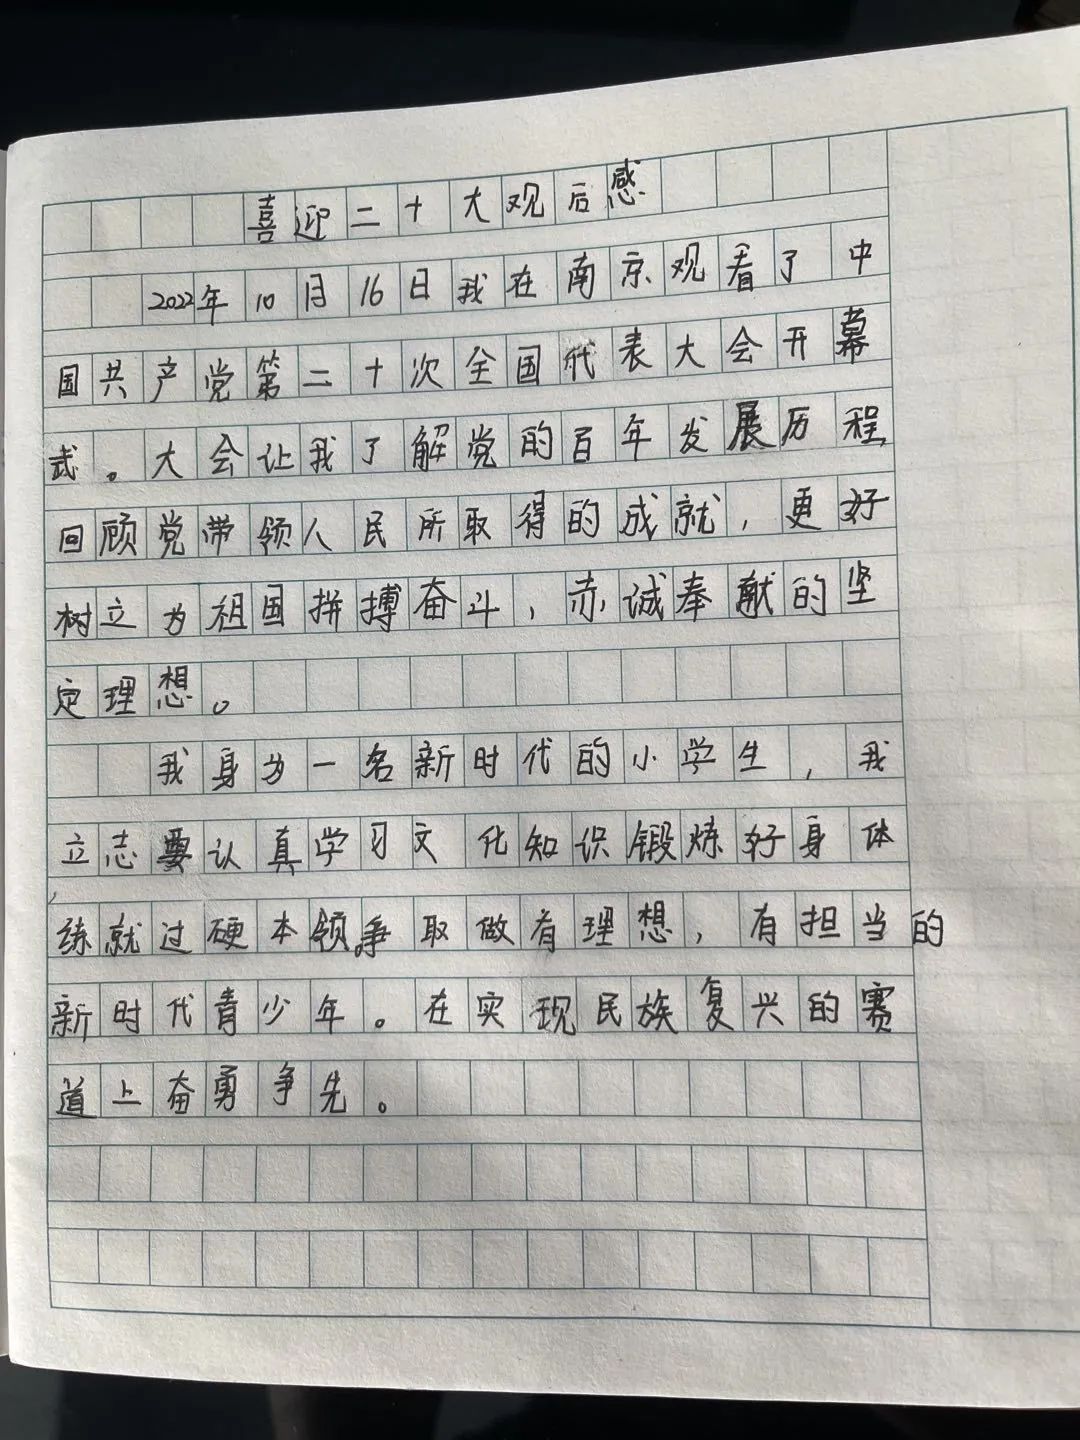 喜迎二十大观后感
2022年10月16日我在南京观看了中
国共产党第二十次全国代表大会开幕
式。大会让我了解党的百年发展历程,
回顾党带领人民所取得的成就,更好
树立为祖国拼搏奋斗,赤诚奉献的坚
定理想。
我身为一名新时代的小学生,我
立志要认真学习文化知识锻炼好身体
,练就过硬本领,争取做有理想,有担当的
新时代青少年。在实现民族复兴的赛
道上奋勇争先。